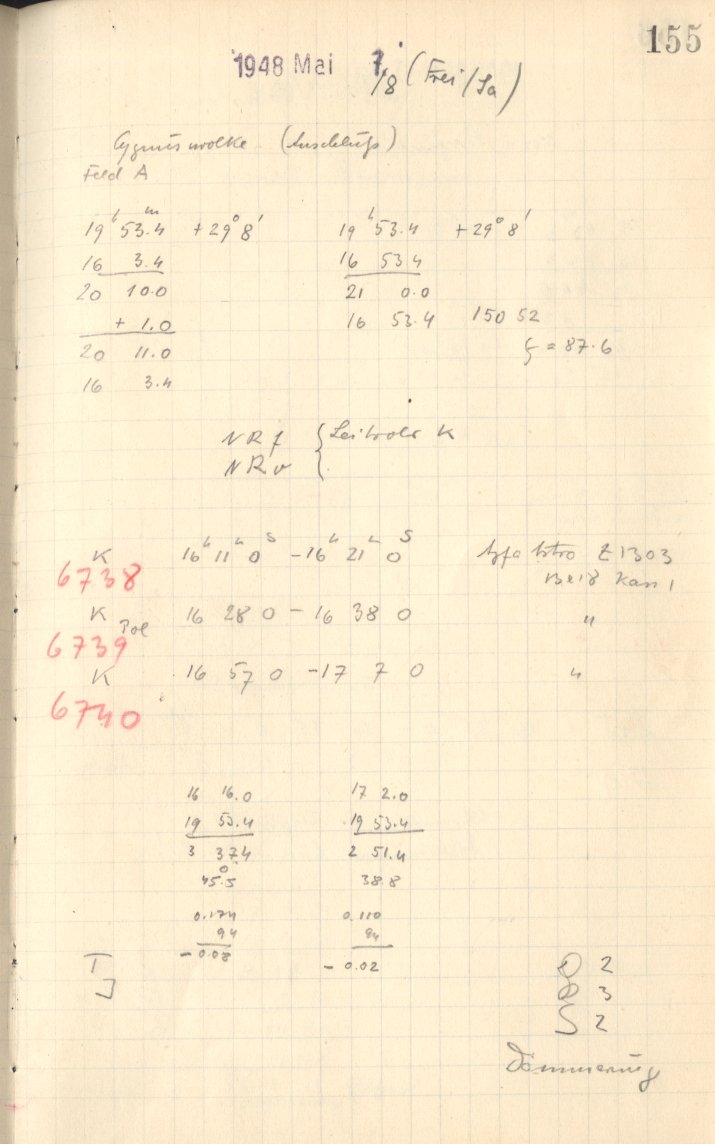 155
1948 Mai 7./8 (Frei/Sa)
Cygnuswolke (Anschluß)
Feld A
19ʰ 53.4ᵐ +29° 8' 19ʰ 53.4 +29° 8'
16 3.4 16 53.4
20 10.0 21 0.0
+ 1.0 16 53.4 150 52
20 11.0 ζ = 87.6
16 3.4
NRf { Leitrohr K
NRv
K 16ʰ 11ᵐ 0ˢ – 16ʰ 21ᵐ 0ˢ Agfa Astro Z 1303
6738 Kass 1
K Pol 16 28 0 – 16 38 0 "
6739
K 16 57 0 – 17 7 0 "
6740
16 16.0 17 2.0
19 53.4 19 53.4
3 37.4 2 51.4
45.5° 38.8
0.174 0.110
94 94
– 0.08 – 0.02
T 2
J 3
S 2
Dämmerung